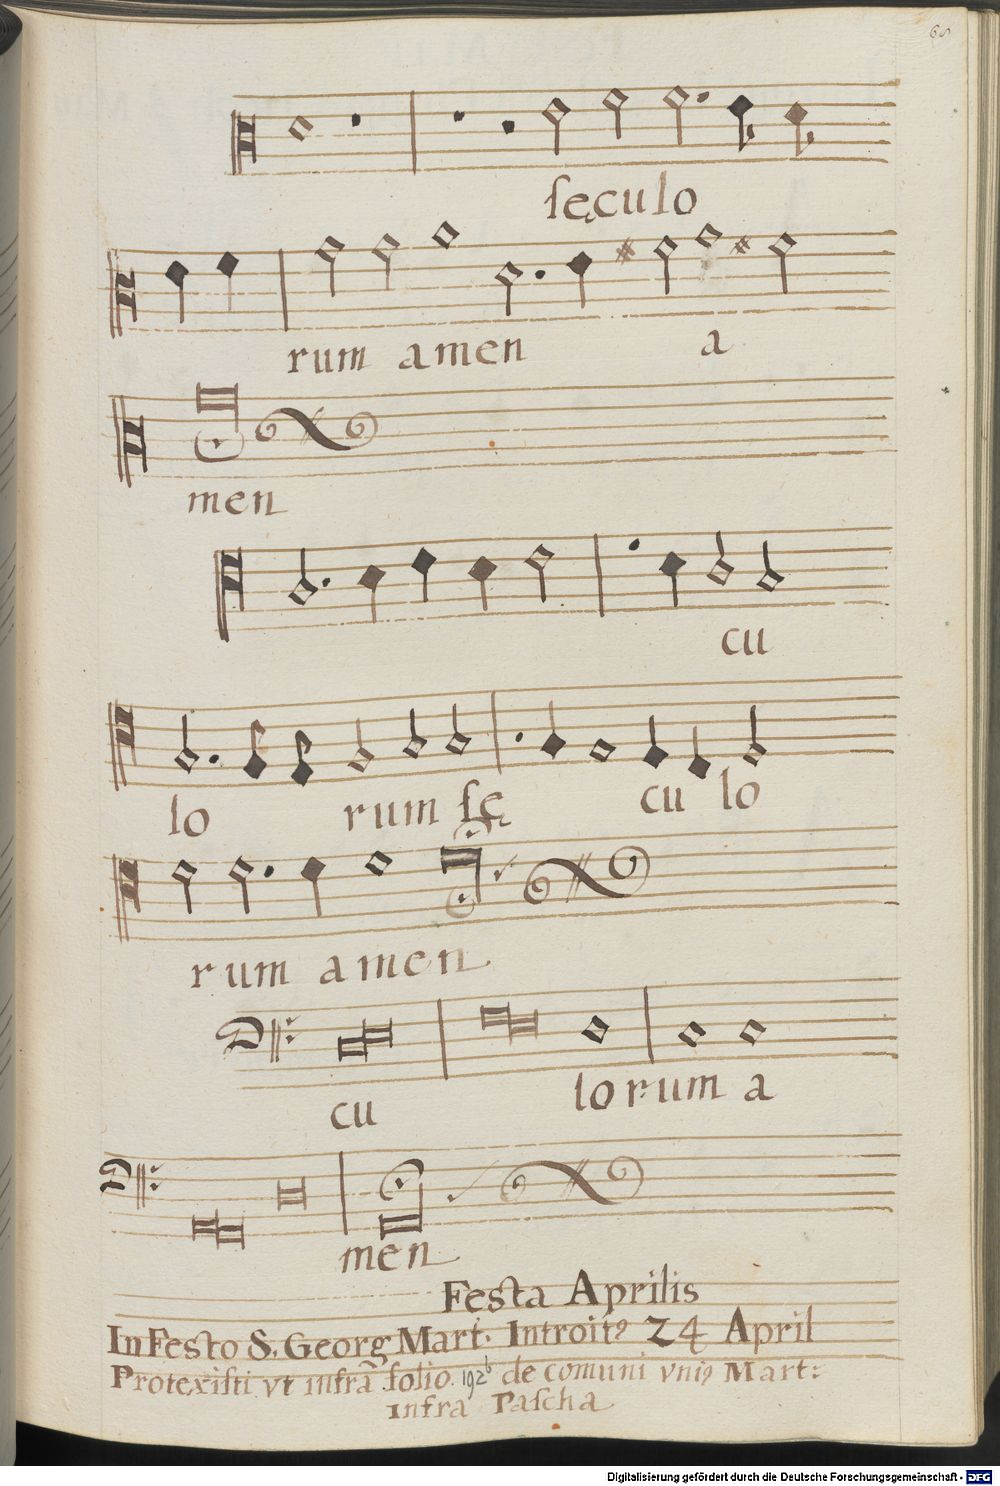 68
ſęculo
rum amen a
men
cu
lo rum ſę cu lo
rum amen
cu lorum a
men
Festa Aprilis
In Festo S. Georg Mart: Introitꝰ 24 April
Protexisti vt infrā folio. 192b de comuni vniꝰ Mart:
infra Pascha
Digitalisierung gefördert durch die Deutsche Forschungsgemeinschaft - DFG